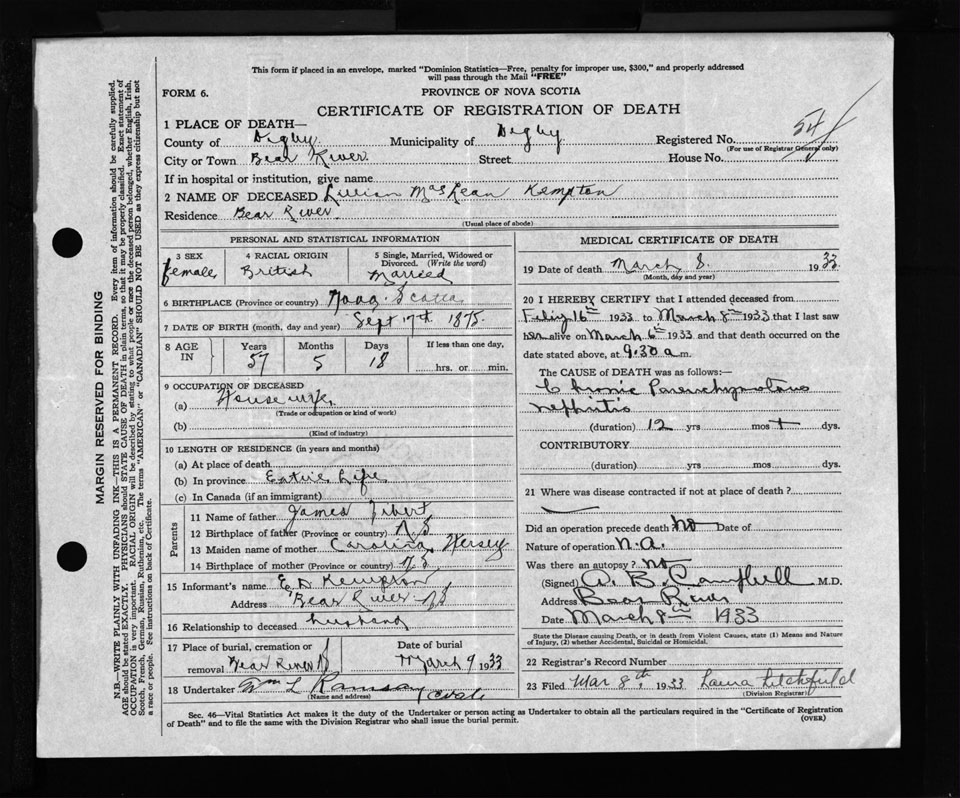 This form if placed in an envelope, marked "Dominion Statistics—Free, penalty for improper use, $300," and properly addressed
will pass through the Mail "FREE"
FORM 6.
PROVINCE OF NOVA SCOTIA
CERTIFICATE OF REGISTRATION OF DEATH
1 PLACE OF DEATH—
County of Digby Municipality of Digby Registered No. 54
(For use of Registrar General only)
City or Town Bear River Street House No.
If in hospital or institution, give name
2 NAME OF DECEASED Lillian MacLean Kempton
Residence Bear River
(Usual place of abode)
PERSONAL AND STATISTICAL INFORMATION
3 SEX 4 RACIAL ORIGIN 5 Single, Married, Widowed or
Divorced. (Write the word)
female British Married
6 BIRTHPLACE (Province or country) Nova Scotia
7 DATE OF BIRTH (month, day and year) Sept 17th 1875
8 AGE IN Years Months Days If less than one day,
57 5 18 hrs. or min.
9 OCCUPATION OF DECEASED
(a) Housewife
(Trade or occupation or kind of work)
(b)
(Kind of industry)
10 LENGTH OF RESIDENCE (in years and months)
(a) At place of death
(b) In province Entire Life
(c) In Canada (if an immigrant)
Parents
11 Name of father James
12 Birthplace of father (Province or country) N.S
13 Maiden name of mother Carolina Hersey
14 Birthplace of mother (Province or country) N.S
15 Informant's name E D Kempton
Address Bear River NS
16 Relationship to deceased husband
17 Place of burial, cremation or removal Bear River Date of burial March 9 1933
18 Undertaker Wm L Ramsay
(Name and address)
MEDICAL CERTIFICATE OF DEATH
19 Date of death March 8. 1933
(Month, day and year)
20 I HEREBY CERTIFY that I attended deceased from
16th 1933 to March 8th 1933 that I last saw
her alive on March 6th 1933 and that death occurred on the
date stated above, at 9.30 a.m.
The CAUSE OF DEATH was as follows:
Chronic Parenchymatous
nephritis
(duration) 12 yrs mos + dys.
CONTRIBUTORY
(duration) yrs mos dys.
21 Where was disease contracted if not at place of death?
Did an operation precede death? No Date of
Nature of operation N.A.
Was there an autopsy? No
(Signed) A. B. Campbell M.D.
Address Bear River
Date March 8th 1933
State the Disease causing Death, or in death from Violent Causes, state (1) Means and Nature
of Injury, (2) whether Accidental, Suicidal or Homicidal.
22 Registrar's Record Number
23 Filed Mar 8th, 1933 Laura Litchfield
(Division Registrar)
Sec. 46—Vital Statistics Act makes it the duty of the Undertaker or person acting as Undertaker to obtain all the particulars required in the "Certificate of Registration
of Death" and to file the same with the Division Registrar who shall issue the burial permit.
(OVER)
MARGIN RESERVED FOR BINDING
N.B.—WRITE PLAINLY WITH UNFADING INK—THIS IS A PERMANENT RECORD. Every item of information should be carefully supplied.
AGE should be stated EXACTLY. PHYSICIANS should STATE CAUSE OF DEATH in plain terms, so that it may be properly classified. Exact statement of
OCCUPATION is very important. RACIAL ORIGIN will be described by stating to what people or race the deceased person belonged, whether English, Irish,
Scotch, French, German, Russian, Ruthenian, etc. The terms "AMERICAN" or "CANADIAN" SHOULD NOT BE USED as they express citizenship but not
a race or people. See instructions on back of Certificate.